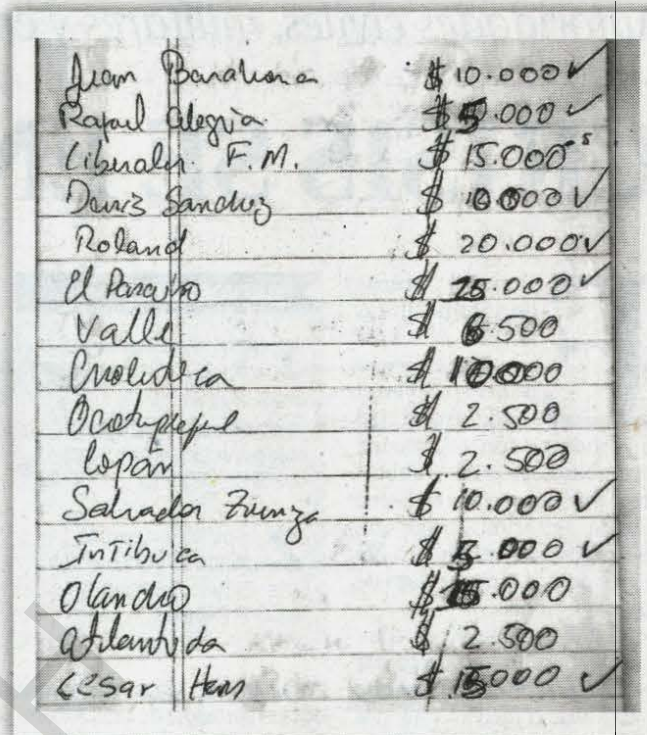 Juan Barahona $ 10.000 ✓
Rafael Alegria $ 5.000 ✓
Liberales F.M. $ 15.000
Denis Sanchez $ 10000 ✓
Roland $ 20.000 ✓
El Paraiso $ 25.000 ✓
Valle $ 6.500
Choluteca $ 10000
Ocotepeque $ 2.500
Copán $ 2.500
Salvador Zuniga $ 10.000 ✓
Intibuca $ 5.000 ✓
Olancho $ 15.000
Atlantida $ 2.500
Cesar Ham $ 15000 ✓